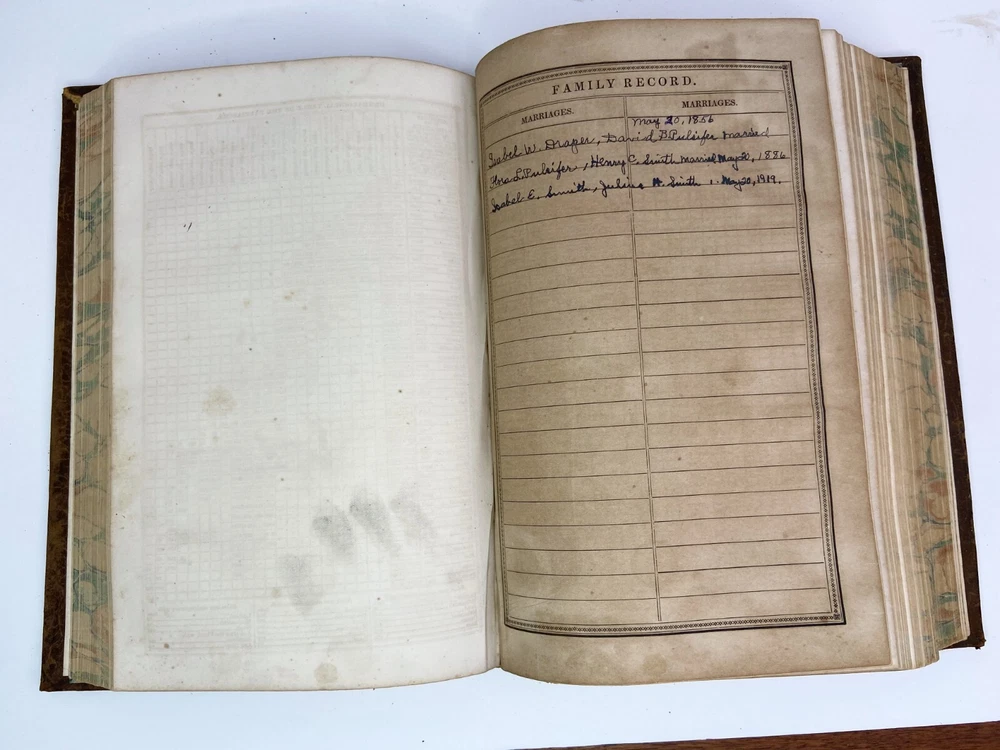 FAMILY RECORD.
MARRIAGES.
MARRIAGES.
May 20, 1856
Isabel W. Draper, David B Pulsifer married
Flora L. Pulsifer, Henry C. Smith married May 20, 1886
Isabel E. Smith, Julius H. Smith May 20, 1919.